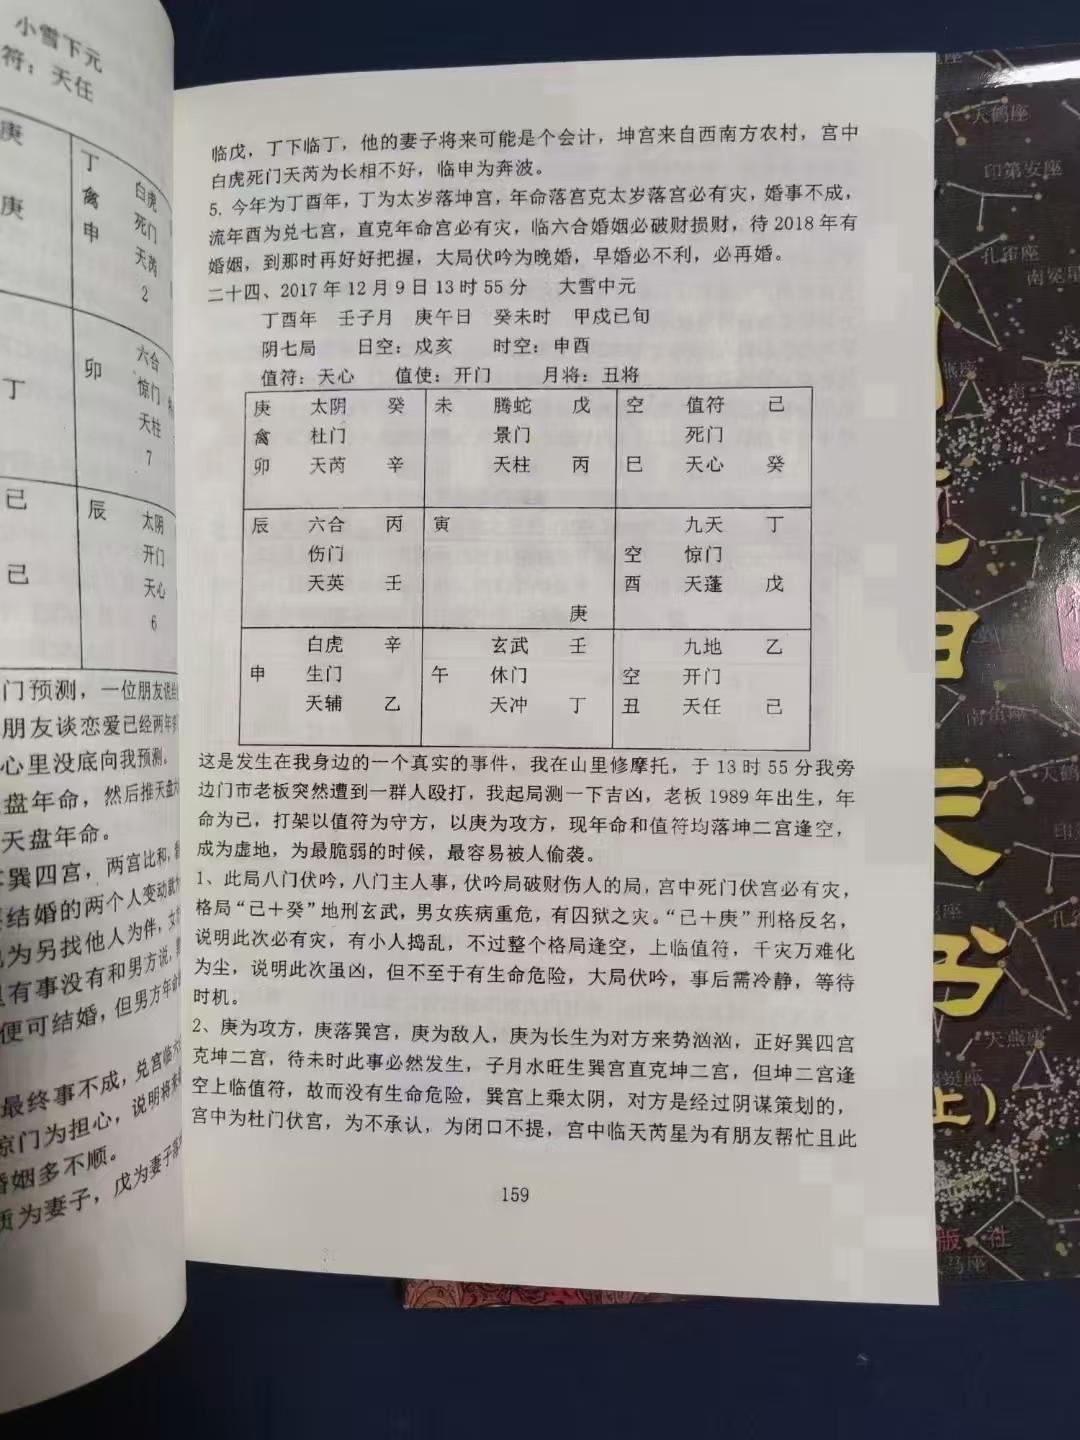 小雪下元
符：天任
庚
丁
白虎
禽
死门
庚
申
天芮
2
六合
卯
惊门
丁
天柱
7
己
辰
太阴
开门
己
天心
6
门预测，一位朋友说
朋友谈恋爱已经两年
心里没底向我预测。
盘年命，然后推天盘
天盘年命。
巽四宫，两宫比和，
结婚的两个人变动就
为另找他人为伴，女
有事没有和男方说，
便可结婚，但男方年命
最终事不成，兑宫临六
惊门为担心，说明将来
婚姻多不顺。
质为妻子，戊为妻子落
临戊，丁下临丁，他的妻子将来可能是个会计，坤宫来自西南方农村，宫中
白虎死门天芮为长相不好，临申为奔波。
5. 今年为丁酉年，丁为太岁落坤宫，年命落宫克太岁落宫必有灾，婚事不成，
流年酉为兑七宫，直克年命宫必有灾，临六合婚姻必破财损财，待 2018 年有
婚姻，到那时再好好把握，大局伏吟为晚婚，早婚必不利，必再婚。
二十四、2017 年 12 月 9 日 13 时 55 分 大雪中元
丁酉年 壬子月 庚午日 癸未时 甲戌已旬
阴七局 日空：戌亥 时空：申酉
值符：天心 值使：开门 月将：丑将
庚 太阴 癸 未 腾蛇 戊 空 值符 己
禽 杜门 景门 死门
卯 天芮 辛 天柱 丙 巳 天心 癸
辰 六合 丙 寅 九天 丁
伤门 空 惊门
天英 壬 酉 天蓬 戊
庚
白虎 辛 玄武 壬 九地 乙
申 生门 午 休门 空 开门
天辅 乙 天冲 丁 丑 天任 己
这是发生在我身边的一个真实的事件，我在山里修摩托，于 13 时 55 分我旁
边门市老板突然遭到一群人殴打，我起局测一下吉凶，老板 1989 年出生，年
命为己，打架以值符为守方，以庚为攻方，现年命和值符均落坤二宫逢空，
成为虚地，为最脆弱的时候，最容易被人偷袭。
1、此局八门伏吟，八门主人事，伏吟局破财伤人的局，宫中死门伏宫必有灾，
格局“己＋癸”地刑玄武，男女疾病重危，有囚狱之灾。“己＋庚”刑格反名，
说明此次必有灾，有小人捣乱，不过整个格局逢空，上临值符，千灾万难化
为尘，说明此次虽凶，但不至于有生命危险，大局伏吟，事后需冷静，等待
时机。
2、庚为攻方，庚落巽宫，庚为敌人，庚为长生为对方来势汹汹，正好巽四宫
克坤二宫，待未时此事必然发生，子月水旺生巽宫直克坤二宫，但坤二宫逢
空上临值符，故而没有生命危险，巽宫上乘太阴，对方是经过阴谋策划的，
宫中为杜门伏宫，为不承认，为闭口不提，宫中临天芮星为有朋友帮忙且此
159
天鹤座
印第安座
孔雀座
南冕星
天燕座
上）
版 社
马座